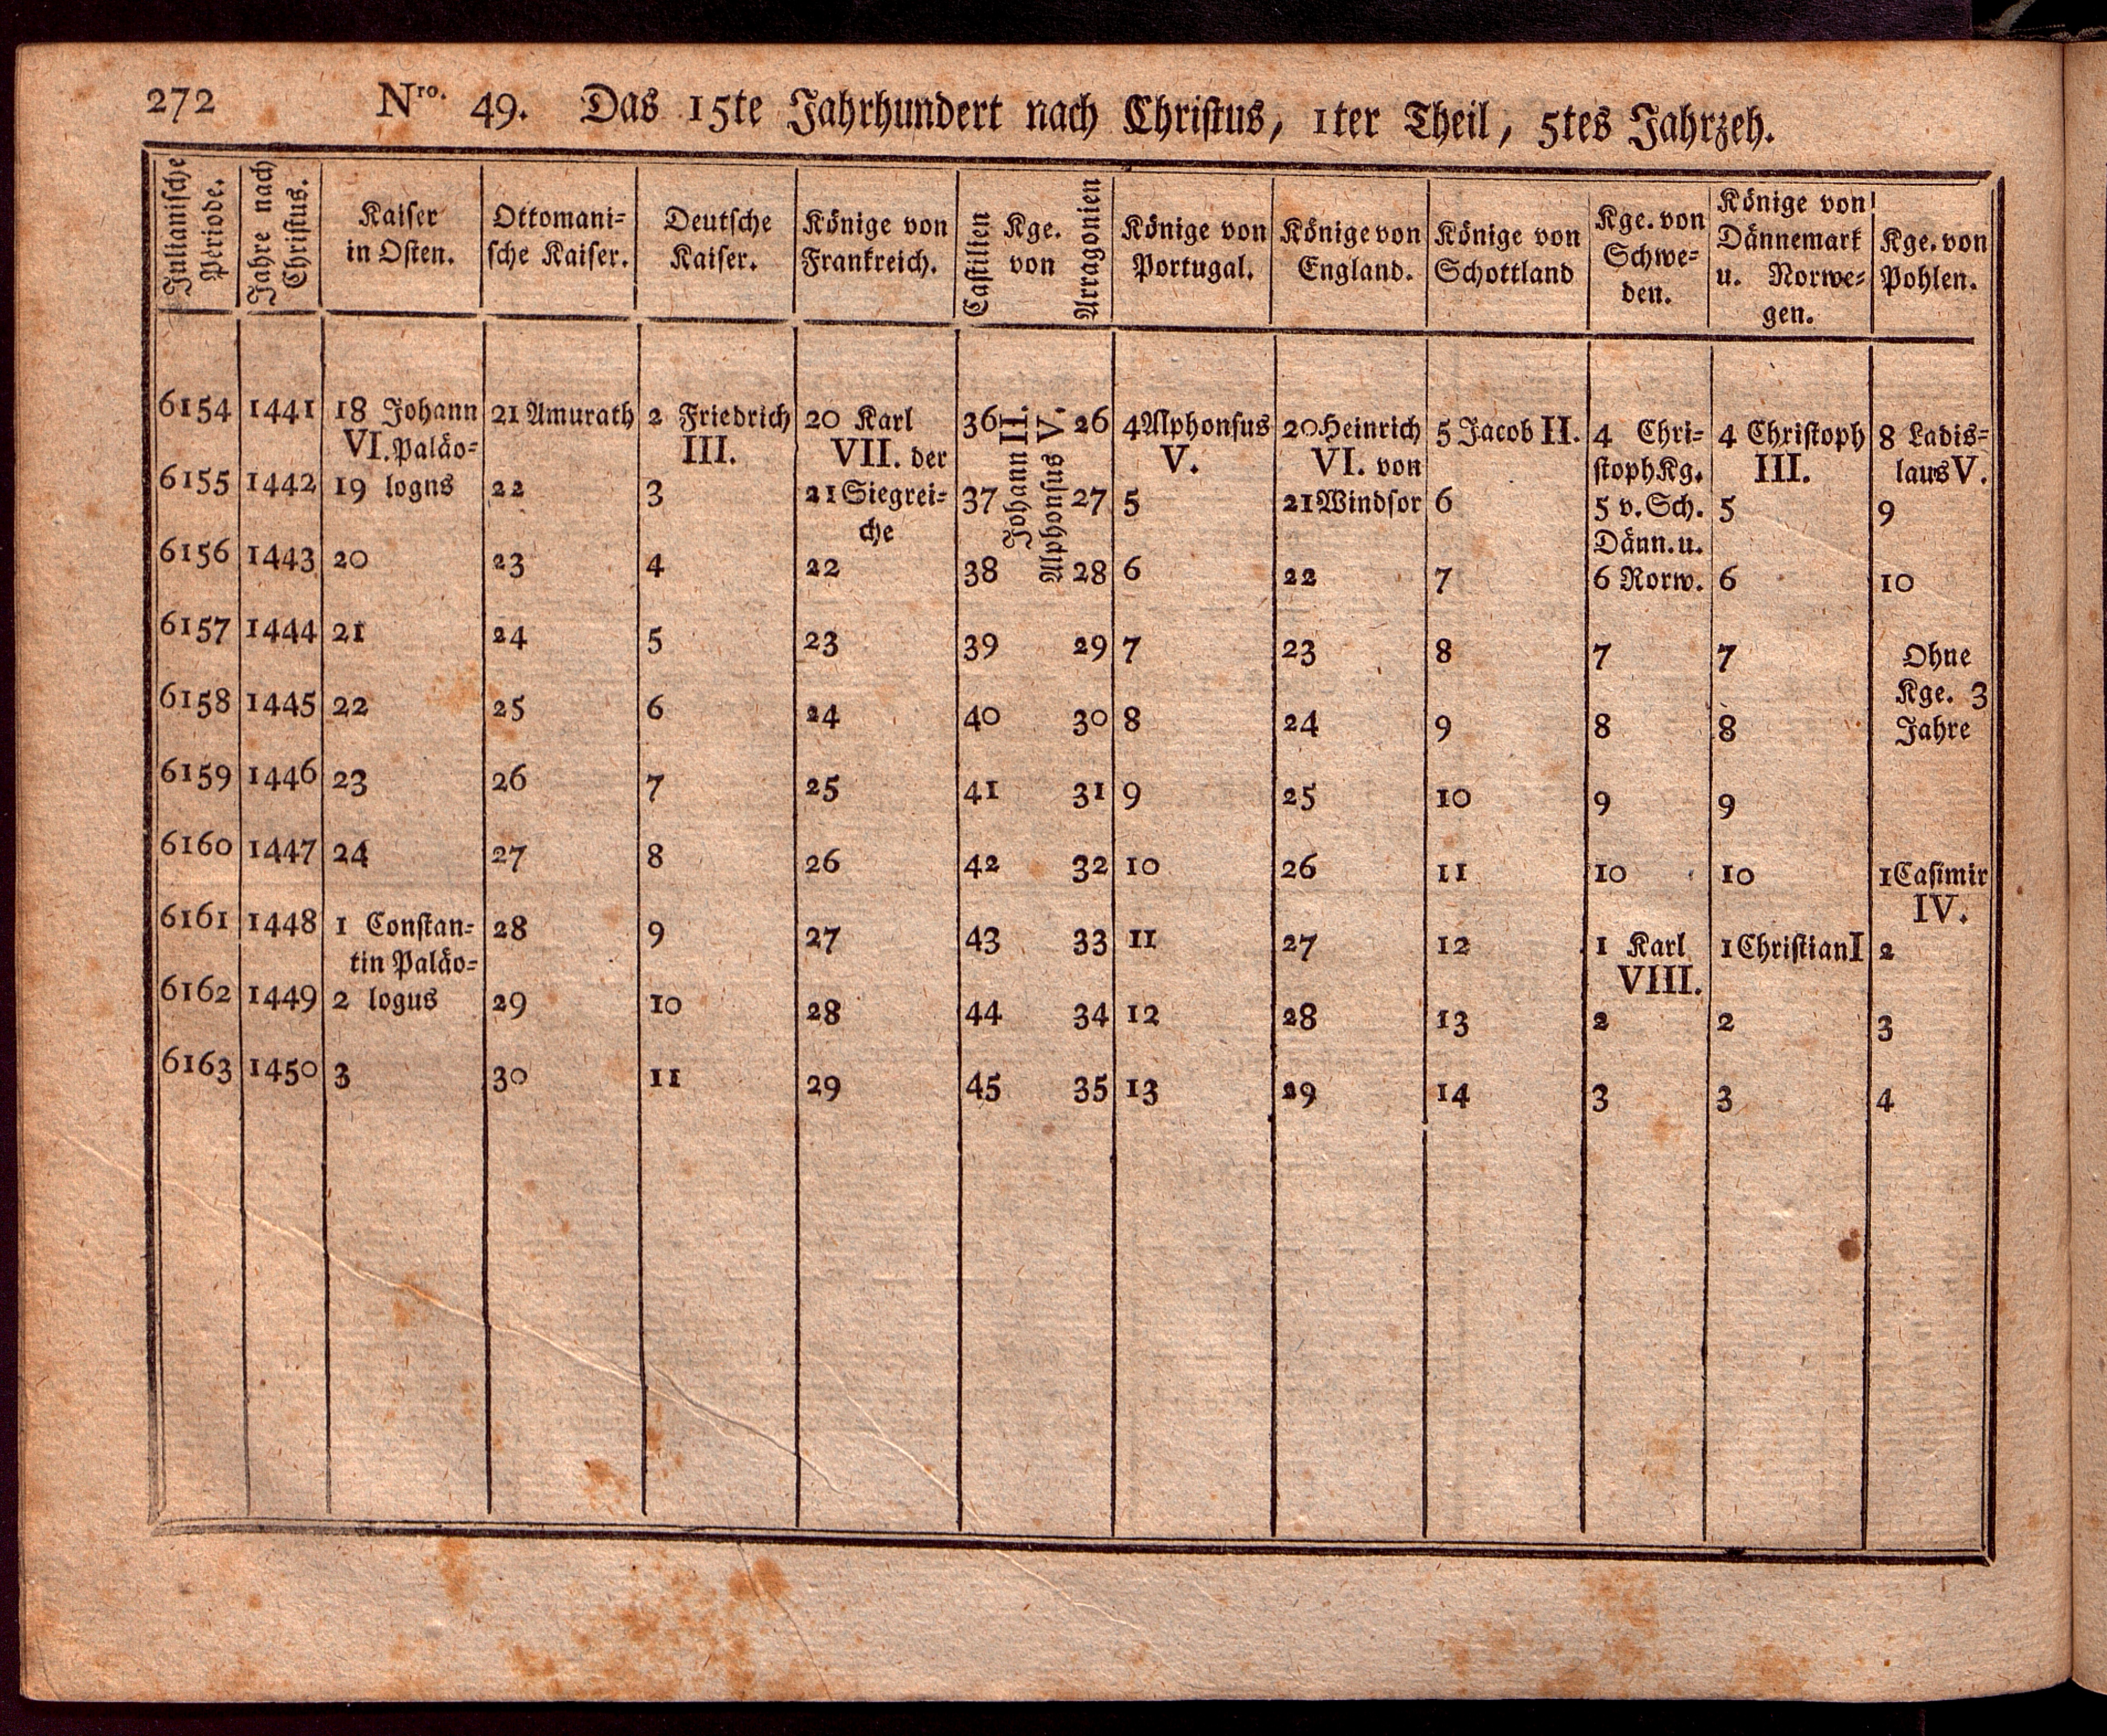 272 Nro. 49. Das 15te Jahrhundert nach Christus, 1ter Theil, 5tes Jahrzeh.
Julianische Periode.
Jahre nach Christus.
Kaiser
in Osten.
Ottomani-
sche Kaiser.
Deutsche
Kaiser.
Könige von
Frankreich.
Castilien
Kge.
von
Arragonien
Könige von
Portugal.
Könige von
England.
Könige von
Schottland
Kge. von
Schwe-
den.
Könige von
Dännemark
u. Norwe-
gen.
Kge. von
Pohlen.
6154 1441 18 Johann 21 Amurath 2 Friedrich 20 Karl 36 Johann II. Alphonsus V. 26 4 Alphonsus 20 Heinrich 5 Jacob II. 4 Chri- 4 Christoph 8 Ladis-
VI. Paläo- III. VII. der V. VI. von stoph Kg. III. laus V.
6155 1442 19 logns 22 3 21 Siegrei- 37 27 5 21 Windsor 6 5 v. Sch. 5 9
che Dänn. u.
6156 1443 20 23 4 22 38 28 6 22 7 6 Norw. 6 10
6157 1444 21 24 5 23 39 29 7 23 8 7 7 Ohne
Kge. 3
6158 1445 22 25 6 24 40 30 8 24 9 8 8 Jahre
6159 1446 23 26 7 25 41 31 9 25 10 9 9
6160 1447 24 27 8 26 42 32 10 26 11 10 10 1 Casimir
IV.
6161 1448 1 Constan- 28 9 27 43 33 11 27 12 1 Karl 1 Christian I 2
tin Paläo- VIII.
6162 1449 2 logus 29 10 28 44 34 12 28 13 2 2 3
6163 1450 3 30 11 29 45 35 13 29 14 3 3 4